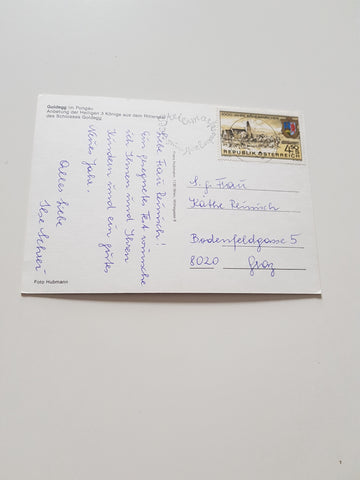 Goldegg im Pongau
Anbetung der Heiligen 3 Könige aus dem Rittersaal
des Schlosses Goldegg
Liebe Frau Reinisch!
Ein gesegnetes Fest wünsche
ich Ihnen und Ihren
Kindern und ein gutes
Neues Jahr.
Alles Liebe
Ilse
Foto Hubmann
REPUBLIK ÖSTERREICH
S.g. Frau
Käthe Reinisch
Bodenfeldgasse 5
8020 Graz